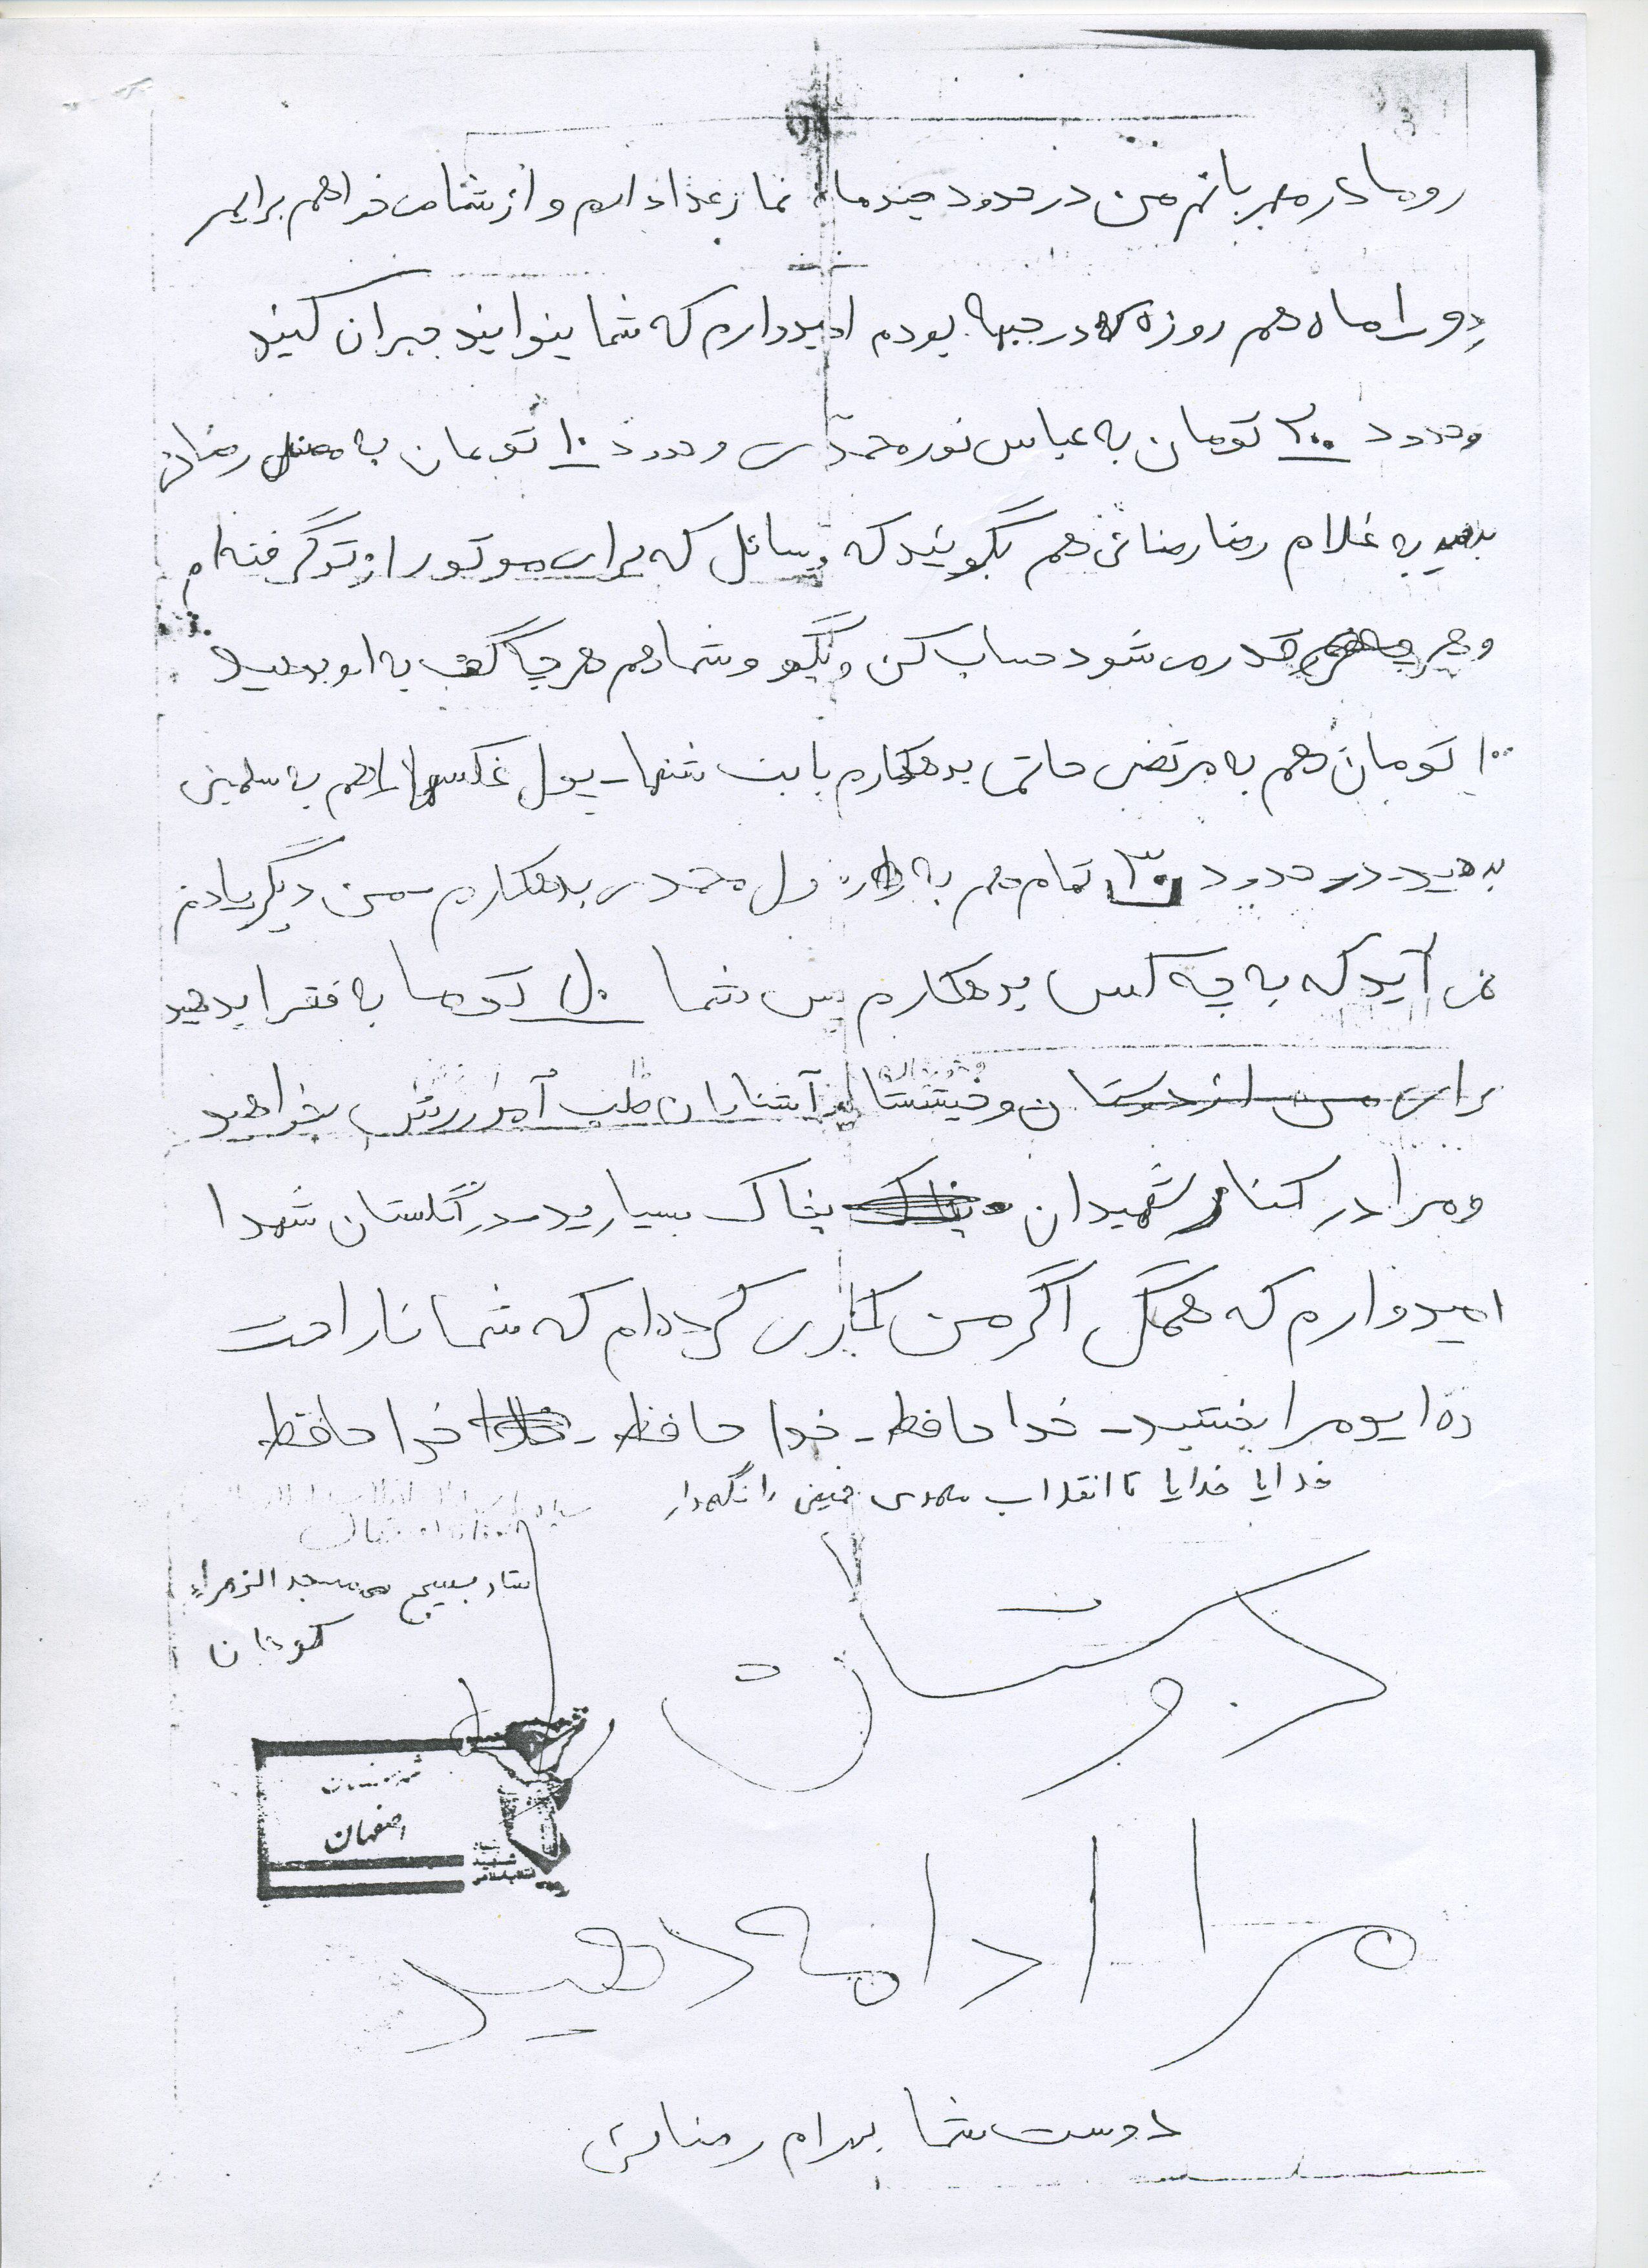 رو مادر مهربانم من در حدود چند ماه نماز عذا دارم و از شما می خواهم برایم
دو را ماه هم روزه که در جبهه بودم امیدوارم که شما بتوانید جبران کنید
وحدود ۲۰۰ تومان به عباس نورمحمدی وحدود ۱۰ تومان به رمضان
بدهید به غلام رضا رضائی هم بگوئید که وسائل که برای موتور از تو گرفته ام
و هر قدر می شود حساب کن و بگو و شما هم هر چا گفت به او بدهید
۱۰۰ تومان هم به مرتضی حاتمی بدهکارم بابت شنها - پول عکسها را هم به
بدهید - در حدود ۳۰ تمام هم به ول محمدی بدهکارم - من دیگر یادم
نمی آید که به چه کسی بدهکارم پس شما توما به فقرا بدهید
برای من از دوستان و خیشتان و آشنایان طلب آمرزش بخواهید
و مرا در کنار شهیدان بخاک بسپارید - در گلستان شهدا
امیدوارم که همگی اگر من کاری کرده ام که شما ناراحت
ده اید مرا ببخشید - خدا حافظ - خدا حافظ - خدا حافظ
خدایا خدایا تا انقلاب مهدی خمینی را نگهدار
ستاد بسیج مسجد الزهراء
کوجان
اصفهان
شهید
مرا ادامه دهید
دوست شما بهرام رضائی